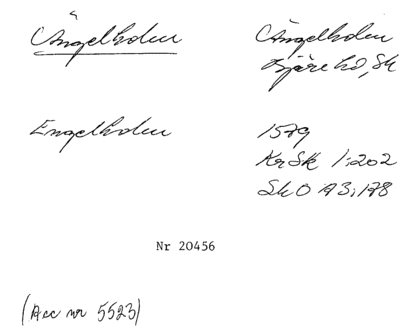 Ängelholm
Ängelholm
Bjäre hd, Sk
Engelholm
1579
KrSk 1:202
SkO A3:178
Nr 20456
(Acc nr 5523)